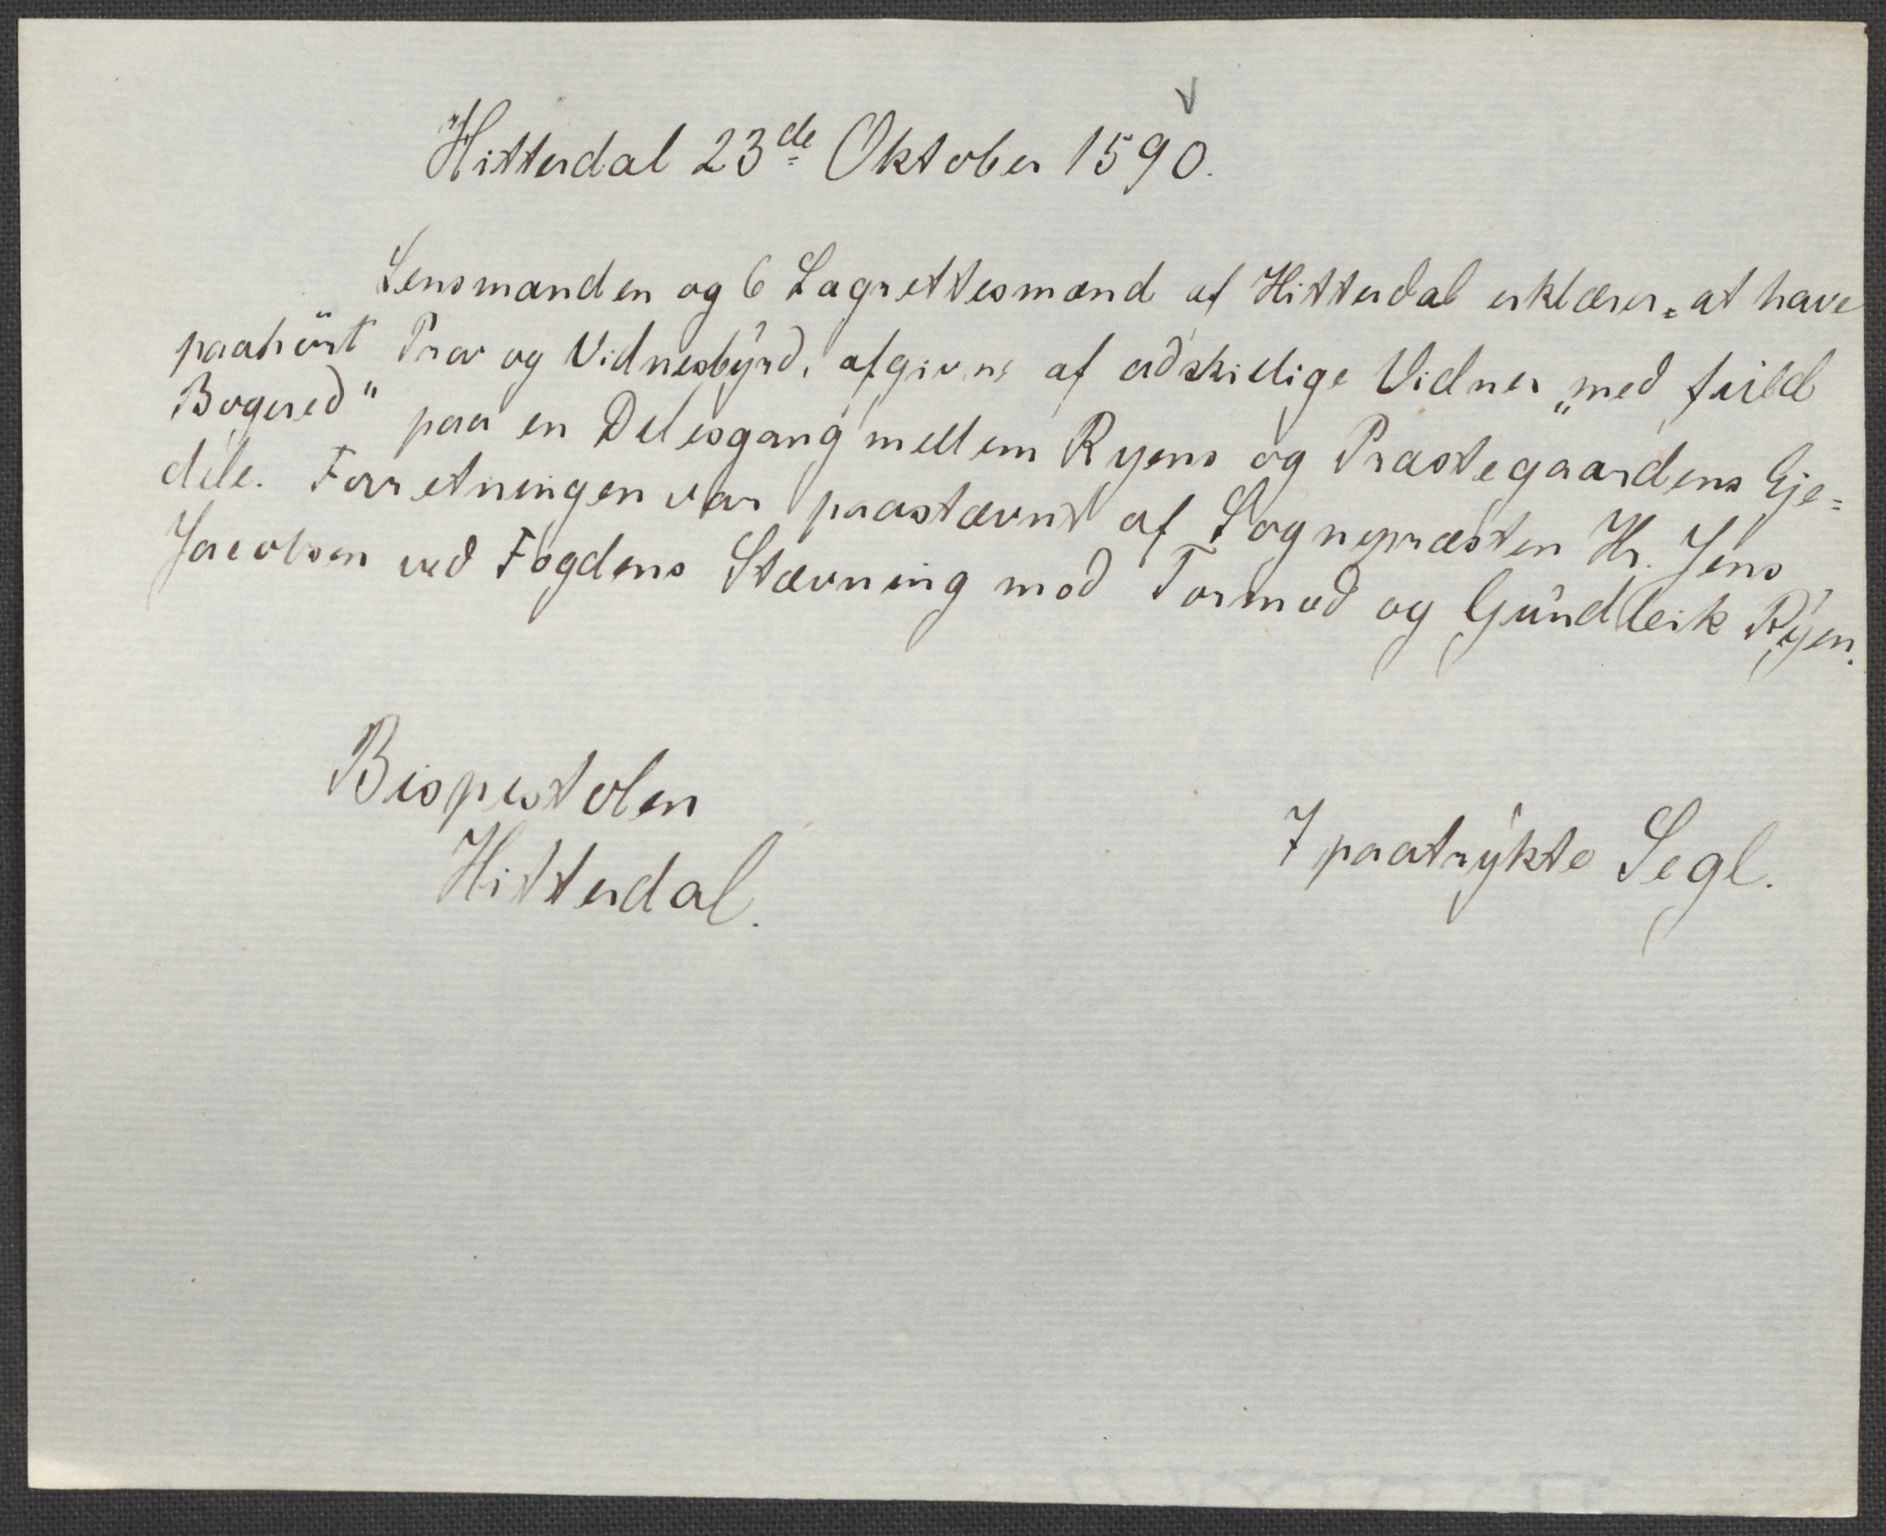 Hitterdal 23de Oktober 1590.
Lensmanden og 6 Lagrettesmænd af Hitterdal erklærer, at have
paahört Prov og Vidnesbyrd, afgivne af adskillige Vidner „med fuld
Bogered" paa en Delesgang mellem Ryens og Præstegaardens Eje-
dele. Forretningen var paastævnt af Sognepræsten Hr. Jens
Jacobsen ved Fogdens Stævning mod Tormod og Gundleik Ryen.
Bispestolen
Hitterdal.
7 paatrykte Segl.